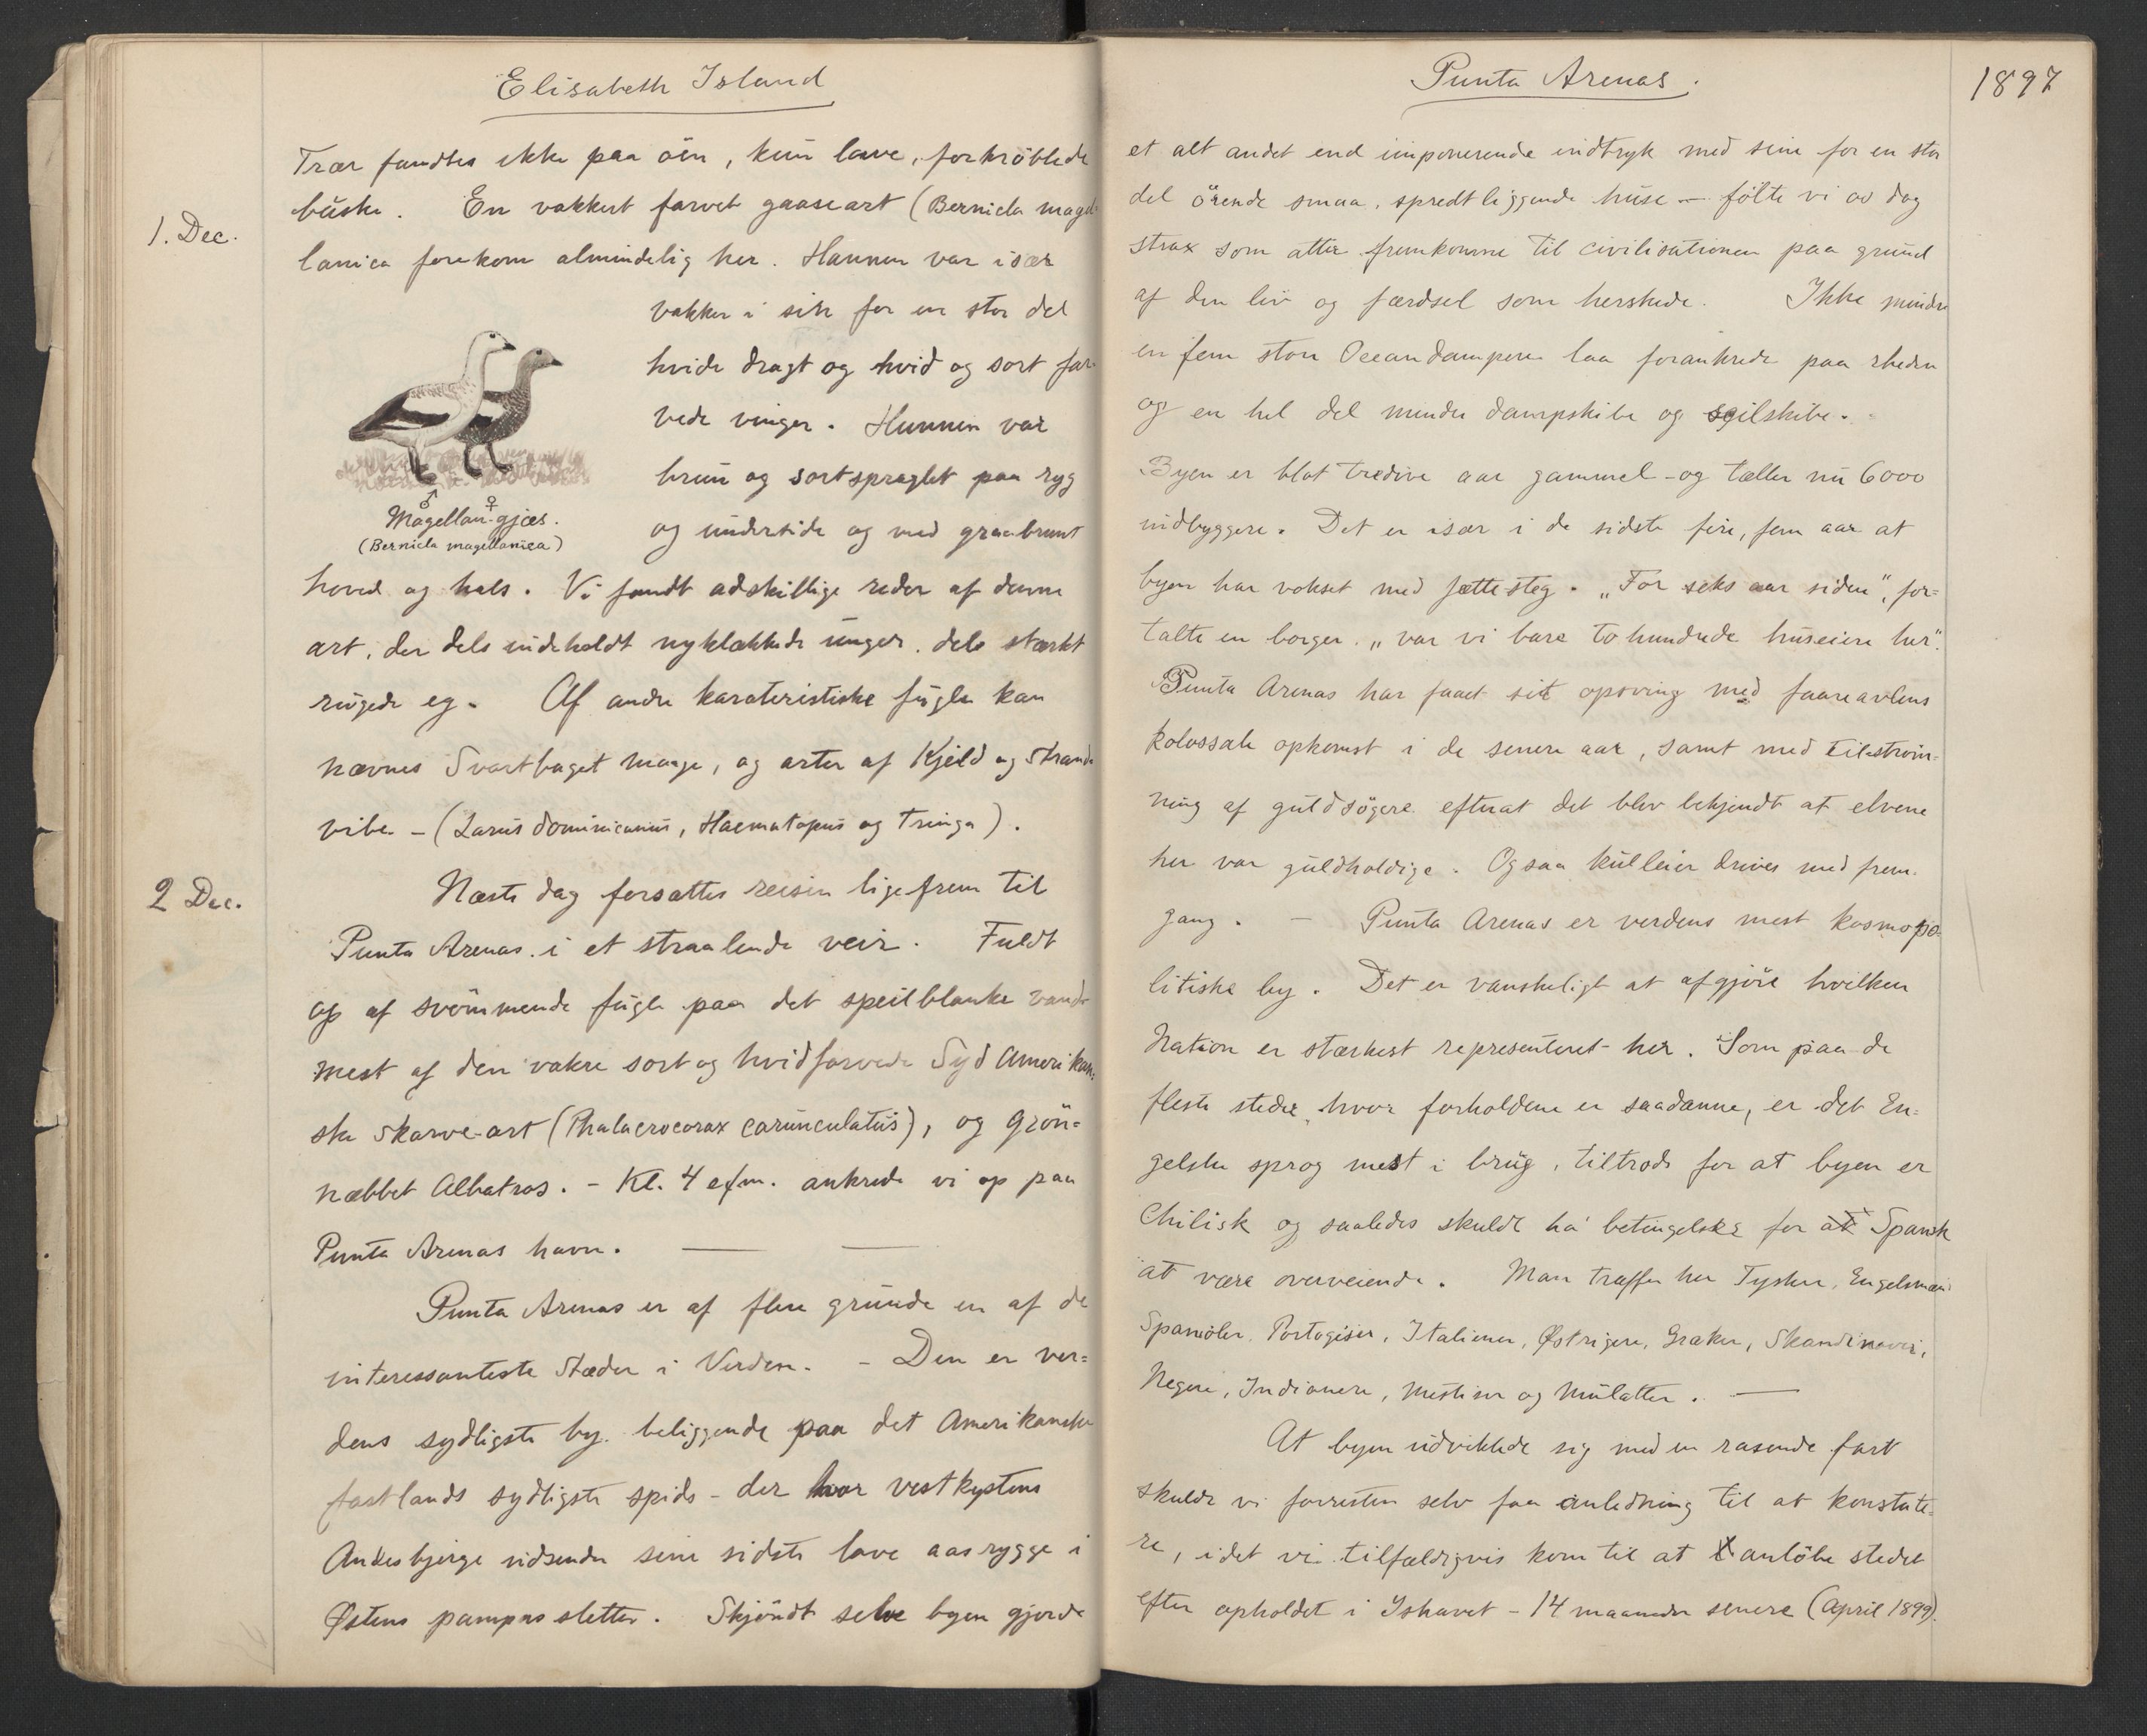 Elisabeth Island
1. Dec.
Trær fandtes ikke paa öen, kun lave, forkröblede
büske. En vakkert farvet gaaseart (Bernicla magel
lanica forekom almindelig her. Hannen var især
vakker i sin for en stor del
hvide dragt og hvid og sort far-
vede vinger. Hunnen var
brun og sortspraglet paa ryg
og underside og med graabrunt
♂ ♀
Magellan-gjæs.
(Bernicla magellanica)
hoved og hals. Vi fandt adskillige reder af denne
art, der dels indeholdt nyklækkede unger, dels stærkt
rugede eg. Af andre karateristiske fugle kan
nævnes Svartbaget maage, og arter af Kjeld og Strand
vibe - (Larus dominicanus, Haematopus og Tringa).
2 Dec.
Næste dag forsattes reisen ligefrem til
Punta Arenas i et straalende veir. Fuldt
op af svömmende fugle paa det speilblanke vand
mest af den vakre sort og hvidfarvede Syd Amerikan=
ske Skarve-art (Phalacrocorax carunculatus), og Grön=
næbbet Albatros. - Kl. 4 efm. ankrede vi op paa
Punta Arenas havn. — —
Punta Arenas er af flere grunde en af de
interessanteste Stæder i Verden. - Den er ver=
dens sydligste by. beliggende paa det Amerikanske
fastlands sydligste spids - der hvor vestkystens
Andesbjerge udsender sine sidste lave aasrygge i
Østens pampas sletter. Skjöndt selve byen gjorde
Punta Arenas.
1897
et alt andet end imponerende indtryk med sine for en stor
del örende smaa, spredt liggende huse - fölte vi os dog
strax som atter fremkomne til civilisationen paa grund
af den liv og færdsel som herskede. Ikke mindre
en fem store Oceandampere laa forankrede paa rheden
og en hel del mindre dampskibe og seilskibe.
Byen er blot tredive aar gammel - og tæller nu 6000
indbyggere. Det er især i de sidste fire, fem aar at
byen har vokset med jættesteg. „For seks aar siden", for=
talte en borger. „var vi bare to hundrede huseiere her".
Punta Arenas har faaet sit opsving med faareavlens
kolossale opkomst i de senere aar, samt med tilström=
ning af guldsögere efterat det blev bekjendt at elvene
her var guldholdige. Ogsaa kulleier drives med frem-
gang. — Punta Arenas er verdens mest kosmopo=
litiske by. Det er vanskeligt at afgjöre hvilken
Nation er stærkest representeret her. Som paa de
fleste steder hvor forholdene er saadanne, er det En=
gelske sprog mest i brug, tiltrods for at byen er
Chilisk og saaledes skulde ha betingelse for at Spansk
at være overveiende. Man træffer her Tyskere, Engelsmænd
Spanioler, Portogiser, Italiener, Østrigere, Græker, Skandinaver,
Negere, Indianere, Mestiser og Mulatter. —
At byen udviklede sig med en rasende fart
skulde vi forresten selv faa anledning til at konstate-
re, idet vi tilfældigvis kom til at anlöbe stedet
efter opholdet i Ishavet - 14 maaneder senere (April 1899).